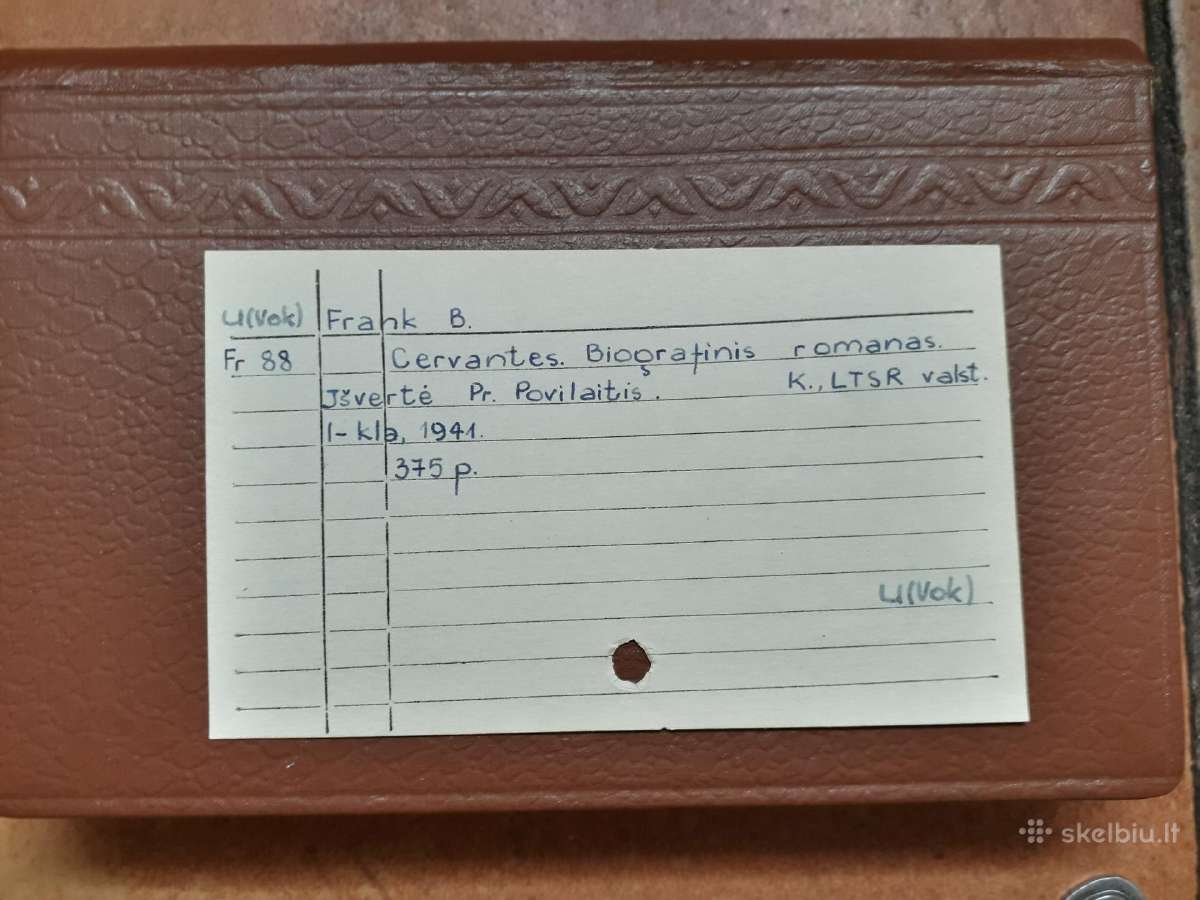 U(Vok) Frank B.
Fr 88 Cervantes. Biografinis romanas.
Išvertė Pr. Povilaitis. K., LTSR valst.
l-kla, 1941.
375 p.
U(Vok)
skelbiu.lt